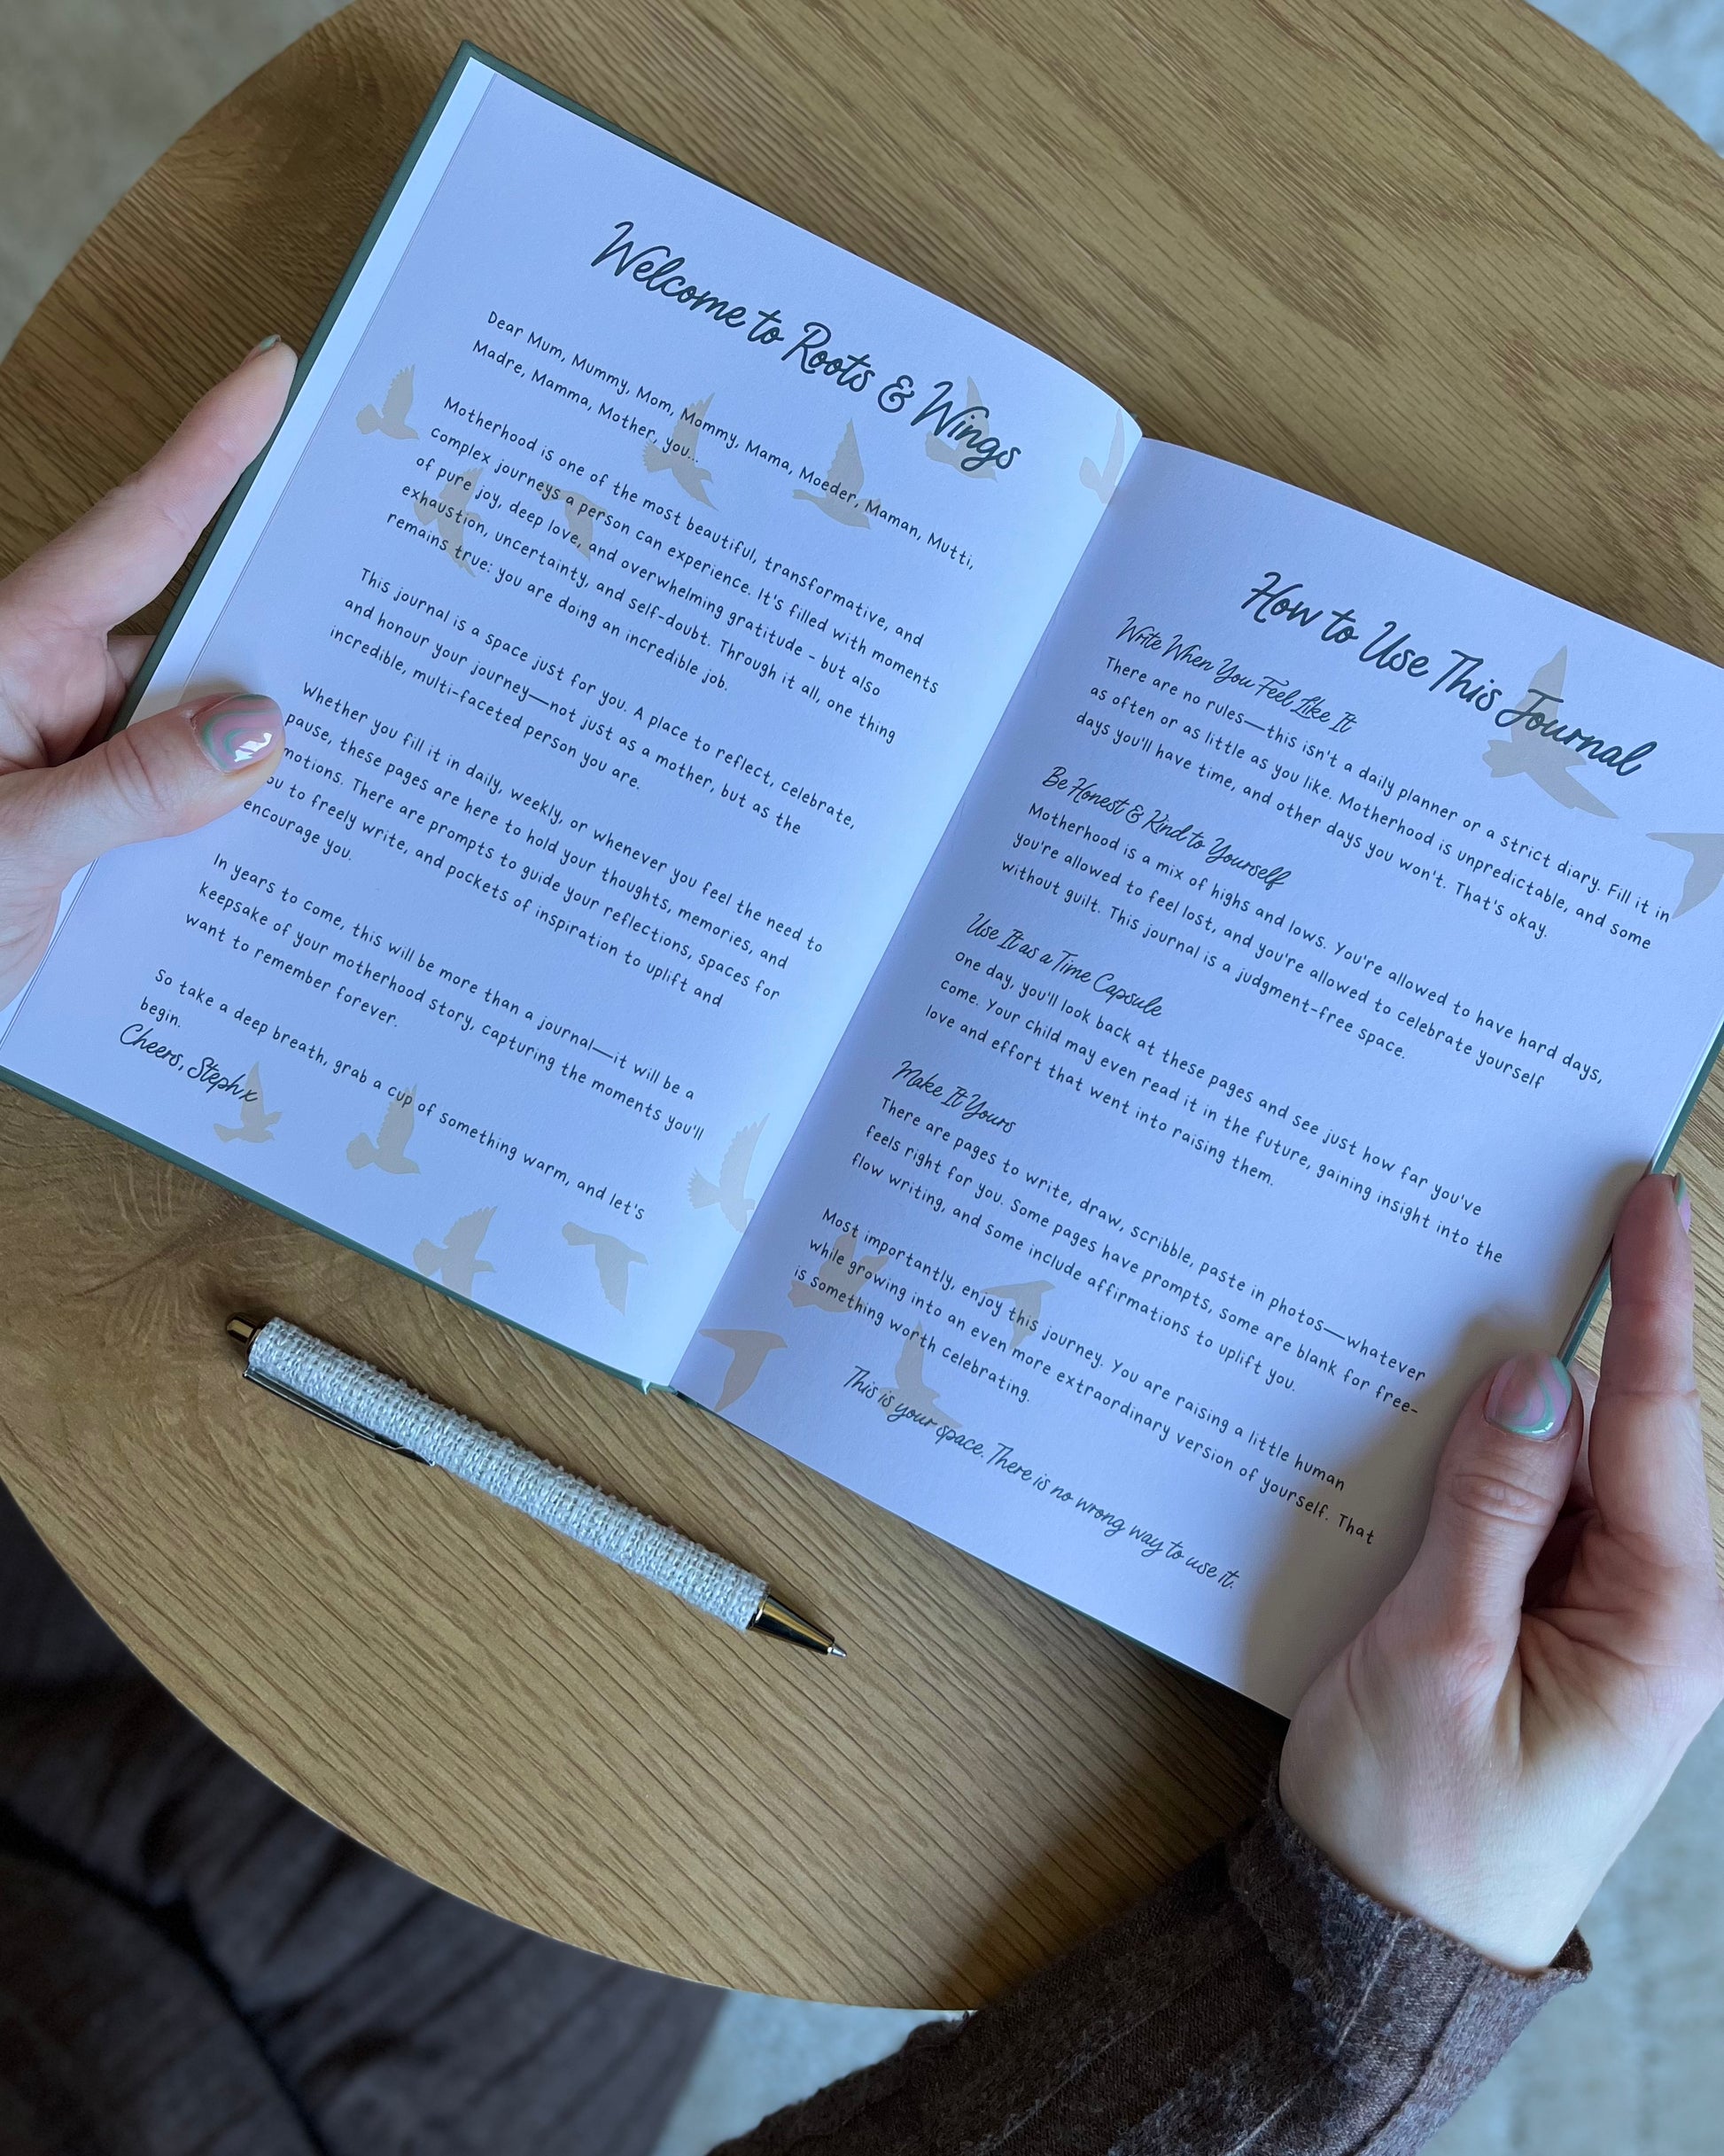 Welcome to Roots & Wings
Dear Mum, Mummy, Mom, Mommy, Mama, Moeder, Maman, Mutti,
Madre, Mamma, Mother, you...
Motherhood is one of the most beautiful, transformative, and
complex journeys a person can experience. It's filled with moments
of pure joy, deep love, and overwhelming gratitude - but also
exhaustion, uncertainty, and self-doubt. Through it all, one thing
remains true: you are doing an incredible job.
This journal is a space just for you. A place to reflect, celebrate,
and honour your journey—not just as a mother, but as the
incredible, multi-faceted person you are.
Whether you fill it in daily, weekly, or whenever you feel the need to
pause, these pages are here to hold your thoughts, memories, and
motions. There are prompts to guide your reflections, spaces for
ou to freely write, and pockets of inspiration to uplift and
encourage you.
In years to come, this will be more than a journal—it will be a
keepsake of your motherhood story, capturing the moments you'll
want to remember forever.
So take a deep breath, grab a cup of something warm, and let's
begin.
Cheers, Steph x
How to Use This Journal
Write When You Feel Like It
There are no rules—this isn't a daily planner or a strict diary. Fill it in
as often or as little as you like. Motherhood is unpredictable, and some
days you'll have time, and other days you won't. That's okay.
Be Honest & Kind to Yourself
Motherhood is a mix of highs and lows. You're allowed to have hard days,
you're allowed to feel lost, and you're allowed to celebrate yourself
without guilt. This journal is a judgment-free space.
Use It as a Time Capsule
One day, you'll look back at these pages and see just how far you've
come. Your child may even read it in the future, gaining insight into the
love and effort that went into raising them.
Make It Yours
There are pages to write, draw, scribble, paste in photos—whatever
feels right for you. Some pages have prompts, some are blank for free-
flow writing, and some include affirmations to uplift you.
Most importantly, enjoy this journey. You are raising a little human
while growing into an even more extraordinary version of yourself. That
is something worth celebrating.
This is your space. There is no wrong way to use it.